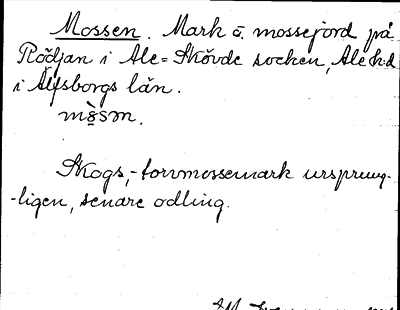 Mossen. Mark o. mossejord på
Rödjan i Ale-Skövde socken, Ale hd
i Älfsborgs län.
mòsm.
Skogs,- torvmossemark ursprung-
-ligen, senare odling.